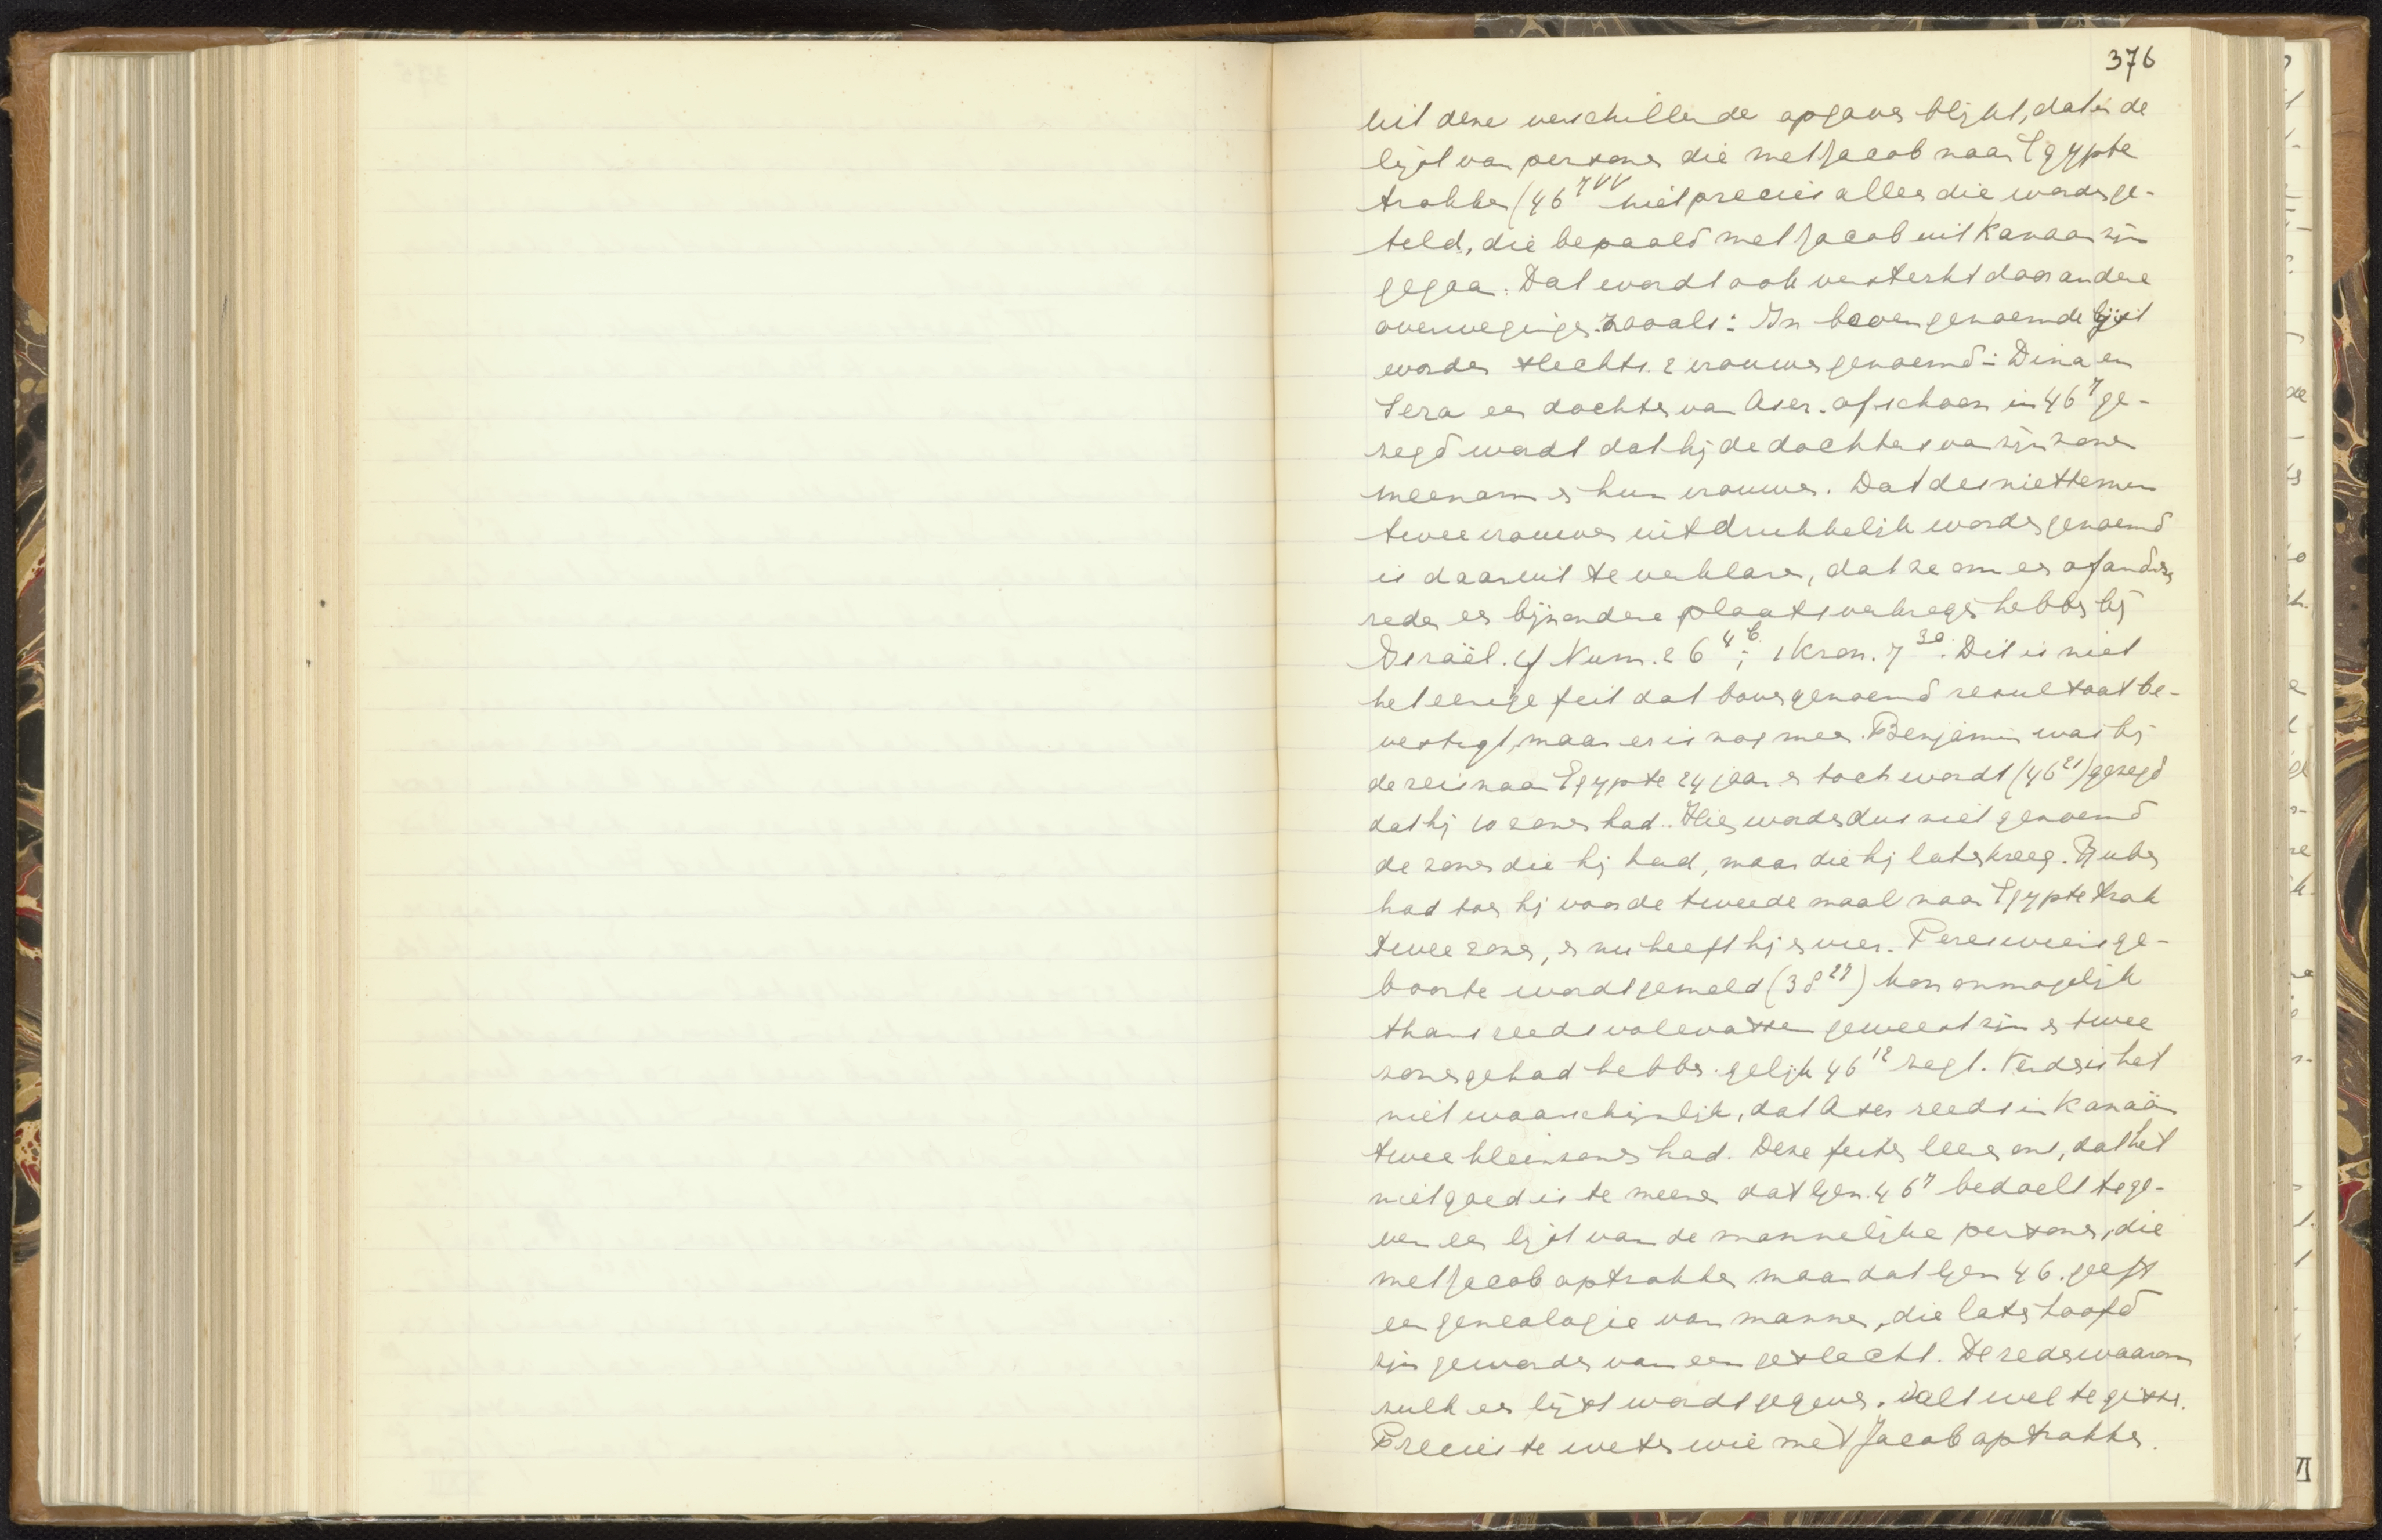 376
uit deze verschillende opgaves blijkt, dat in de
lijst van personen die met Jacob naar Egypte
trokken (46 7vv niet precies alles die worden ge-
teld, die bepaald met Jacob uit Kanaan zijn
gegaan. Dat wordt ook versterkt door andere
overwegingen zooals: In bovengenoemde lijst
worden slechts 2 vrouwen genoemd: Dina en
Sera een dochter van Aser. ofschoon in 46 7 ge-
zegd wordt dat hij de dochters van zijn zonen
meenam en hun vrouwen. Dat desniettemin
twee vrouwen uitdrukkelijk worden genoemd
is daaruit te verklaren, dat ze om een of andere
reden een bijzondere plaats verkregen hebben bij
Israël. cf Num. 26 46; 1 Kron. 7 30. Dit is niet
het eenige feit dat bovengenoemd resultaat be-
vestigt, maar er is nog meer. Benjamin was bij
de reis naar Egypte 24 jaar en toch wordt (46 21) gezegd
dat hij 10 zonen had. Hier worden dus niet genoemd
de zonen die hij had, maar die hij later kreeg. Ruben
had toen hij voor de tweede maal naar Egypte trok
twee zonen, en nu heeft hij er vier. Peres wiens ge-
boorte wordt gemeld (38 27) kon onmogelijk
thans reeds volwassen geweest zijn en twee
zonen gehad hebben gelijk 46 12 zegt. Verder is het
niet waarschijnlijk, dat Aser reeds in Kanaän
twee kleinzonen had. Deze feiten leeren ons, dat het
niet goed is te meenen dat Gen. 46 7 bedoelt te ge-
ven een lijst van de mannelijke personen, die
met Jacob optrokken maar dat Gen 46. geeft
een genealogie van mannen, die later hoofd
zijn geworden van een geslacht. De reden waarom
zulk een lijst wordt gegeven. valt wel te gissen.
Precies te weten wie met Jacob optrokken.
VI